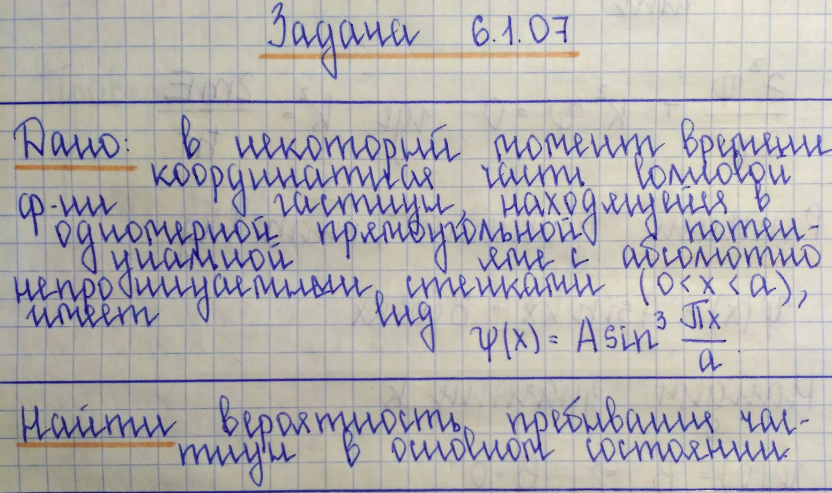 Задача 6.1.07
Дано: в некоторый момент времени
координатная часть волновой
ф-ии частицы, находящейся в
одномерной прямоугольной потен-
циальной яме с абсолютно
непроницаемыми стенками (0<x<a),
имеет вид
ψ(x) = A sin³ πx/a
Найти вероятность пребывания час-
тицы в основном состоянии.